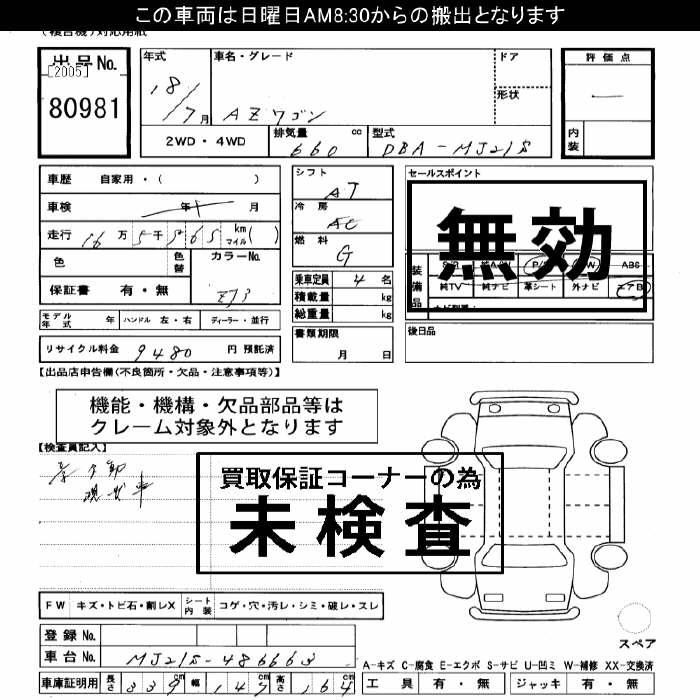 この車両は日曜日AM8:30からの搬出となります
(複合機)対応用紙
出品No.
[2005]
80981
年式
18/7月
車名・グレード
AZワゴン
ドア
形状
評価点
内装
2WD・4WD
排気量
660
cc
型式
DBA-MJ21S
車歴 自家用・( )
車検 年 月
走行 16万5千565 km マイル( )
色
色替
カラーNo.
ZJ3
保証書 有・無
シフト
AT
冷房
AC
燃料
G
乗車定員 4 名
積載量 kg
総重量 kg
セールスポイント
無効
装備品
ABS
純TV 純ナビ 革シート 外ナビ エアB
後日品
モデル年式 年 ハンドル 左・右 ディーラー・並行
書類期限
月 日
リサイクル料金 9480 円 預託済
【出品店申告欄(不良箇所・欠品・注意事項等)】
機能・機構・欠品部品等は
クレーム対象外となります
【検査員記入】
現状車
買取保証コーナーの為
未検査
FW キズ・トビ石・割レX シート内装 コゲ・穴・汚レ・シミ・破レ・スレ
登録No.
車台No. MJ21S-486663
スペア
A-キズ C-腐食 E-エクボ S-サビ U-凹ミ W-補修 XX-交換済
車庫証明用 長さ 339 cm 幅 147 cm 高さ 164 cm
工具 有・無 ジャッキ 有・無